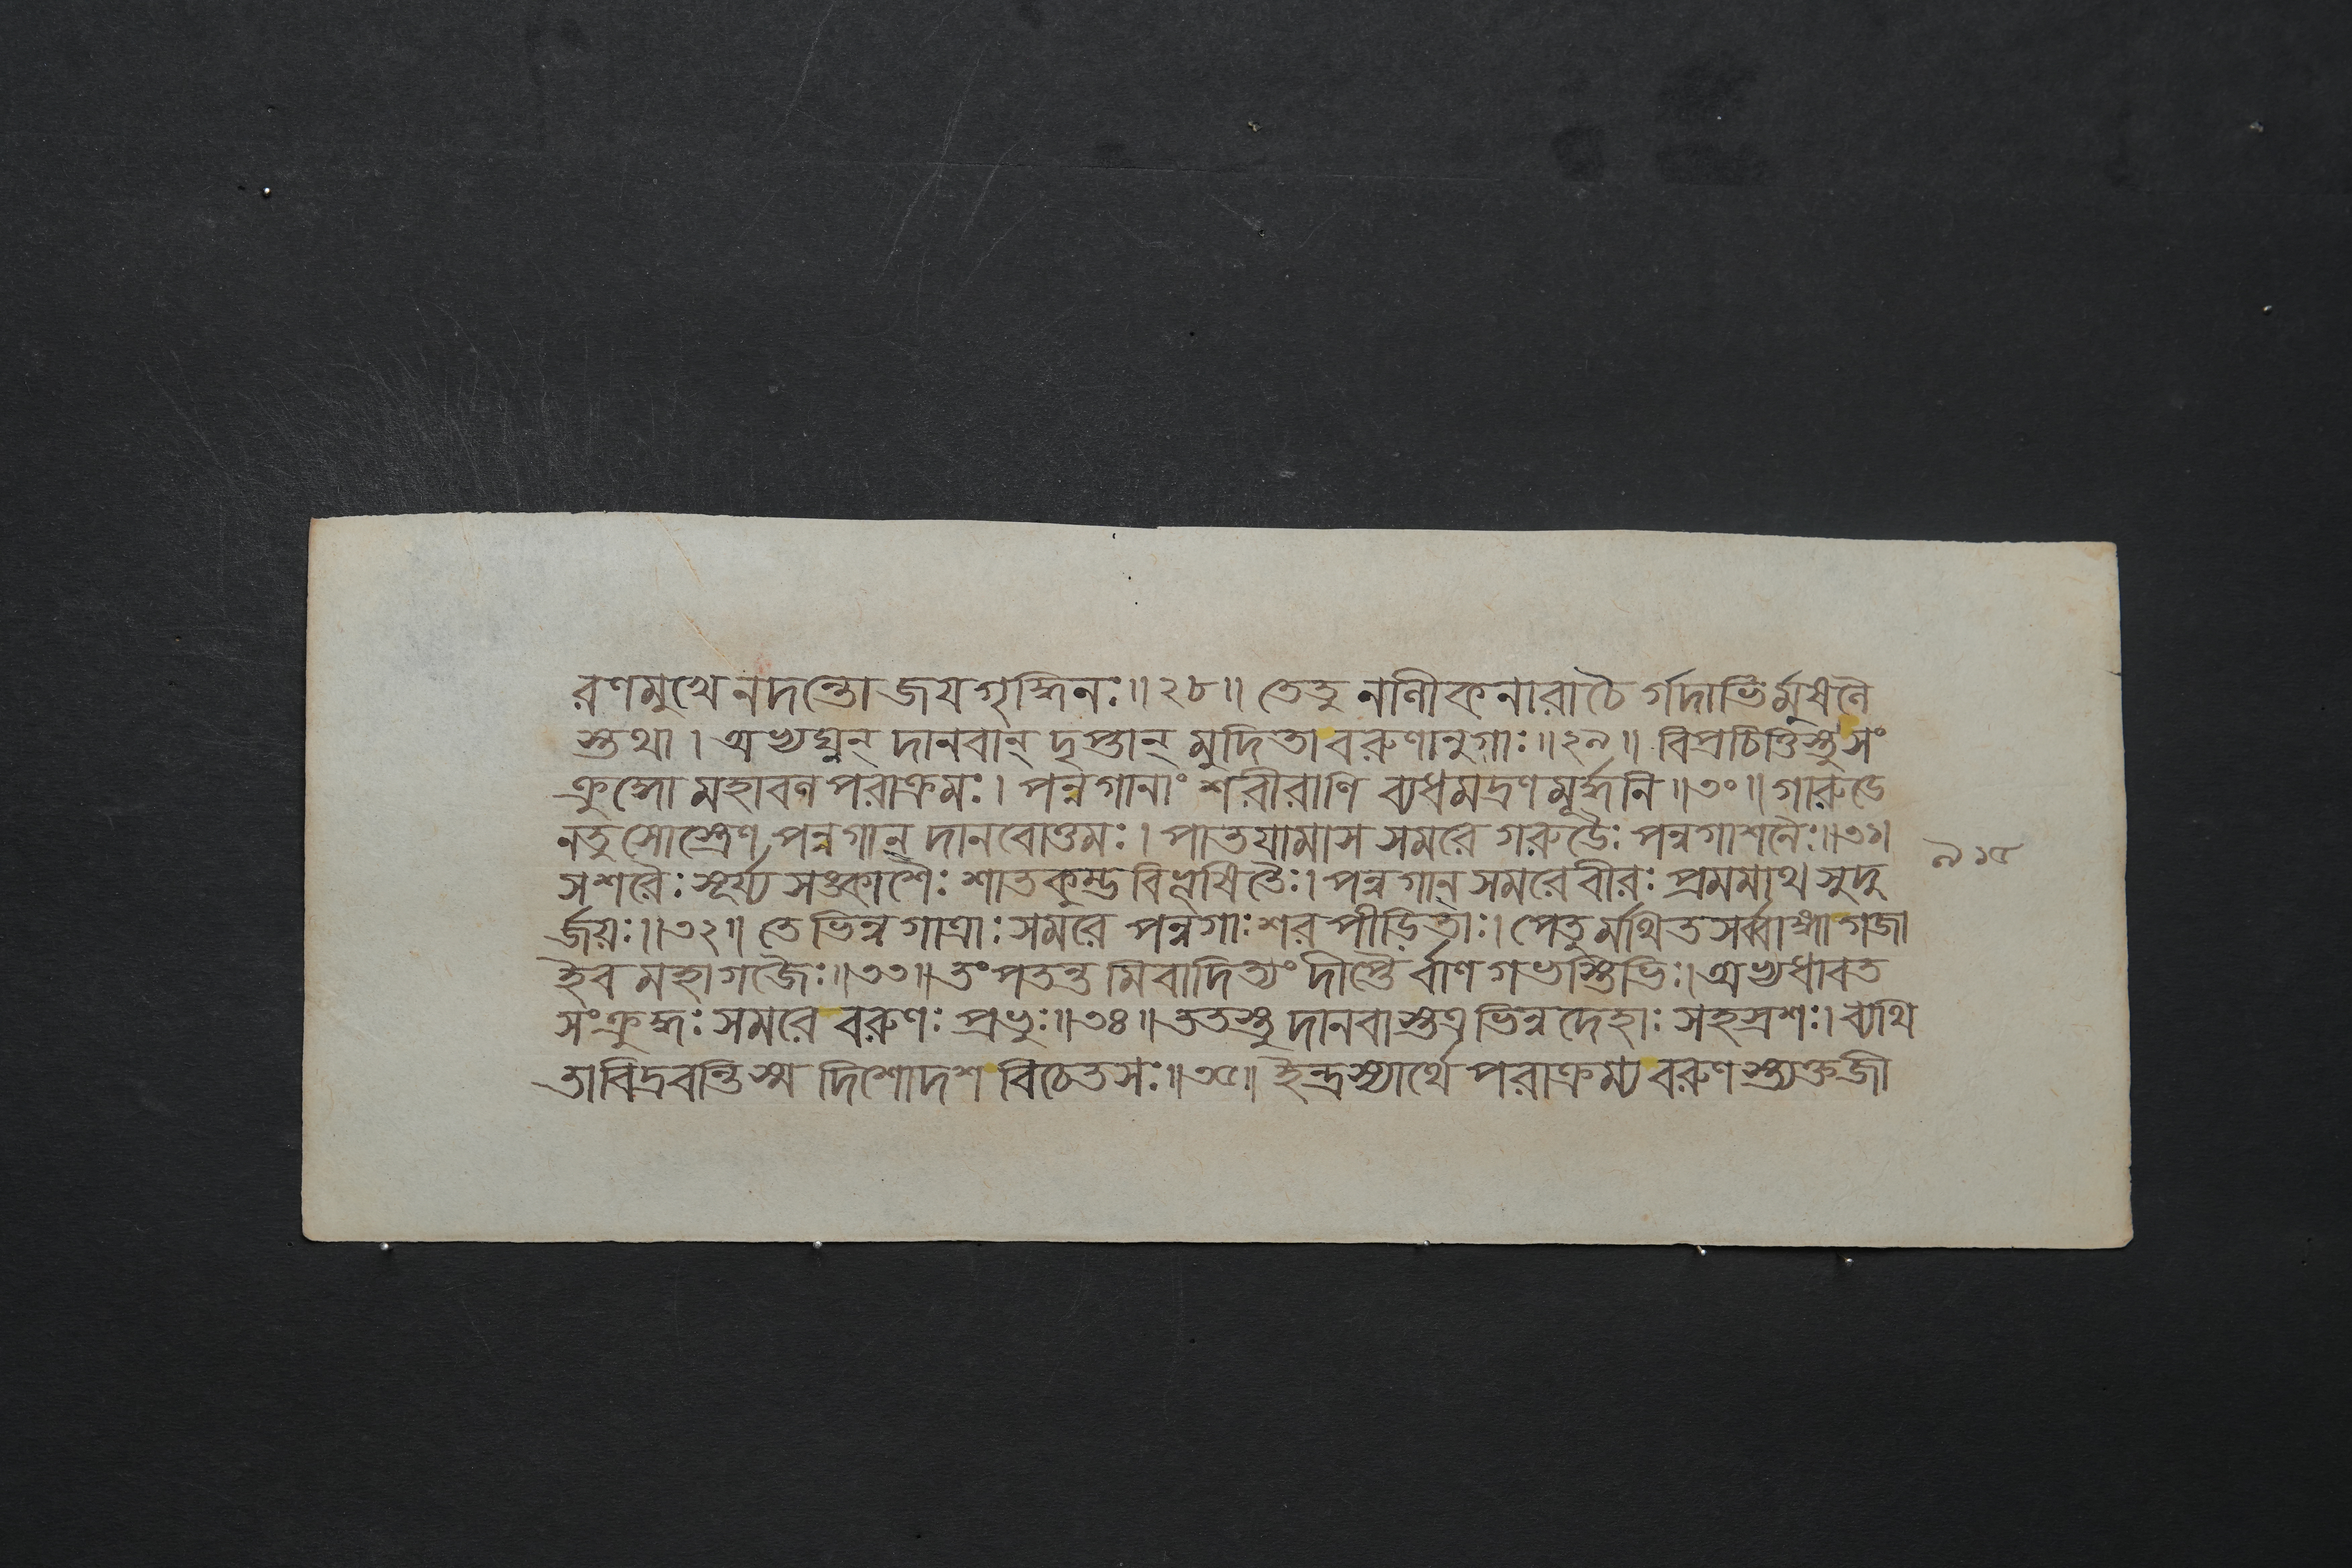 রণমুখে নদন্তো জয়গৃদ্ধিনঃ॥২৮॥ তেতু নালীকনারাচৈ র্গদাভির্মুষলৈ
স্তথা। অভ্যঘ্নন্ দানবান্ দৃপ্তান্ মুদিতা বরুণানুগাঃ॥২৯॥ বিপ্রচিত্তিস্তু সং
ক্রুদ্ধো মহাবল পরাক্রমঃ। পন্নগানাং শরীরাণি ব্যধমদ্রণমূর্দ্ধনি॥৩০॥ গারুডে
নতু সোস্ত্রেণ পন্নগান্ দানবোত্তমঃ। পাতয়ামাস সমরে গরুডৈঃ পন্নগাশনৈঃ॥৩১॥
সশরৈঃ সূর্য্য সঙ্কাশৈঃ শাতকুম্ভ বিভূষিতৈঃ। পন্নগান্ সমরে বীরঃ প্রমমাথ সুদু
র্জয়ঃ॥৩২॥ তে ভিন্ন গাত্রাঃ সমরে পন্নগাঃ শর পীড়িতাঃ। পেতুর্মথিত সর্ব্বাঙ্গা গজা
ইব মহাগজৈঃ॥৩৩॥ তং পতন্ত মিবাদিত্যং দীপ্তৈ র্বাণ গভস্তিভিঃ। অভ্যধাবত
সংক্রুদ্ধঃ সমরে বরুণঃ প্রভুঃ॥৩৪॥ ততস্তু দানবাস্তত্র ভিন্ন দেহাঃ সহস্রশঃ। ব্যথি
তা বিদ্রবন্তি স্ম দিশোদশ বিচেতসঃ॥৩৫॥ ইন্দ্রস্যার্থে পরাক্রম্য বরুণ স্ত্যক্তজী
৯১৫